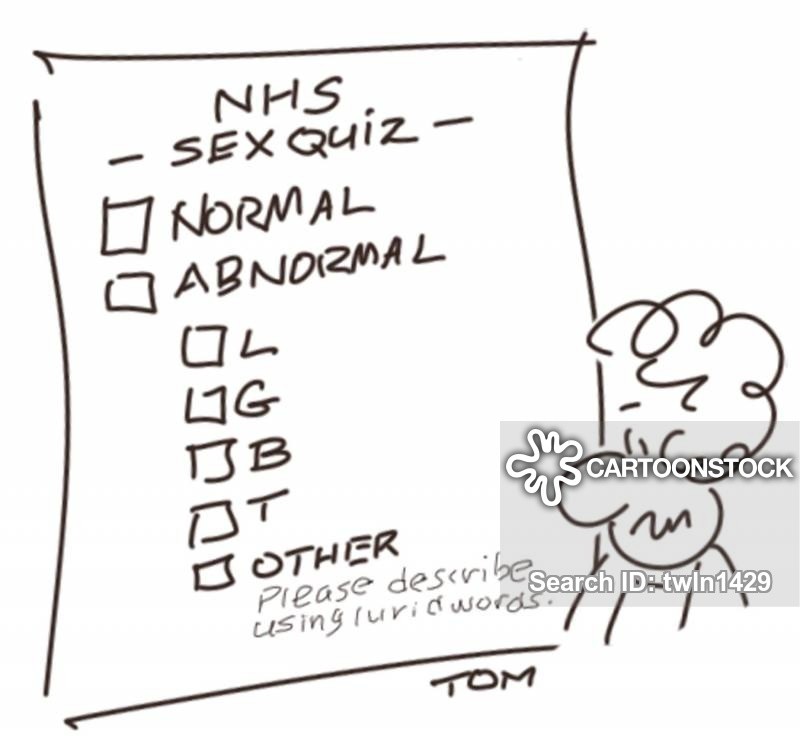 NHS
- SEX QUIZ -
NORMAL
ABNORMAL
L
G
B
T
OTHER
Please describe
using lurid words.
CARTOONSTOCK
Search ID: twln1429
TOM